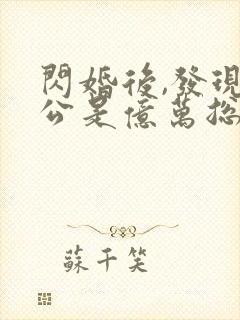 閃婚後,發現
公是億萬総
蘇千笑